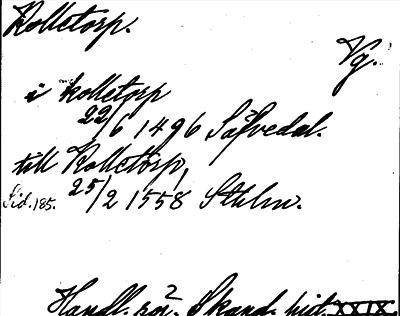 Kolletorp.
Vg.
i kolletorp
22/6 1496 Säfvedal.
till Kolletorp,
Sid. 185. 25/2 1558 Sthlm.
Handl. rör. Skand. hist. XXIX.